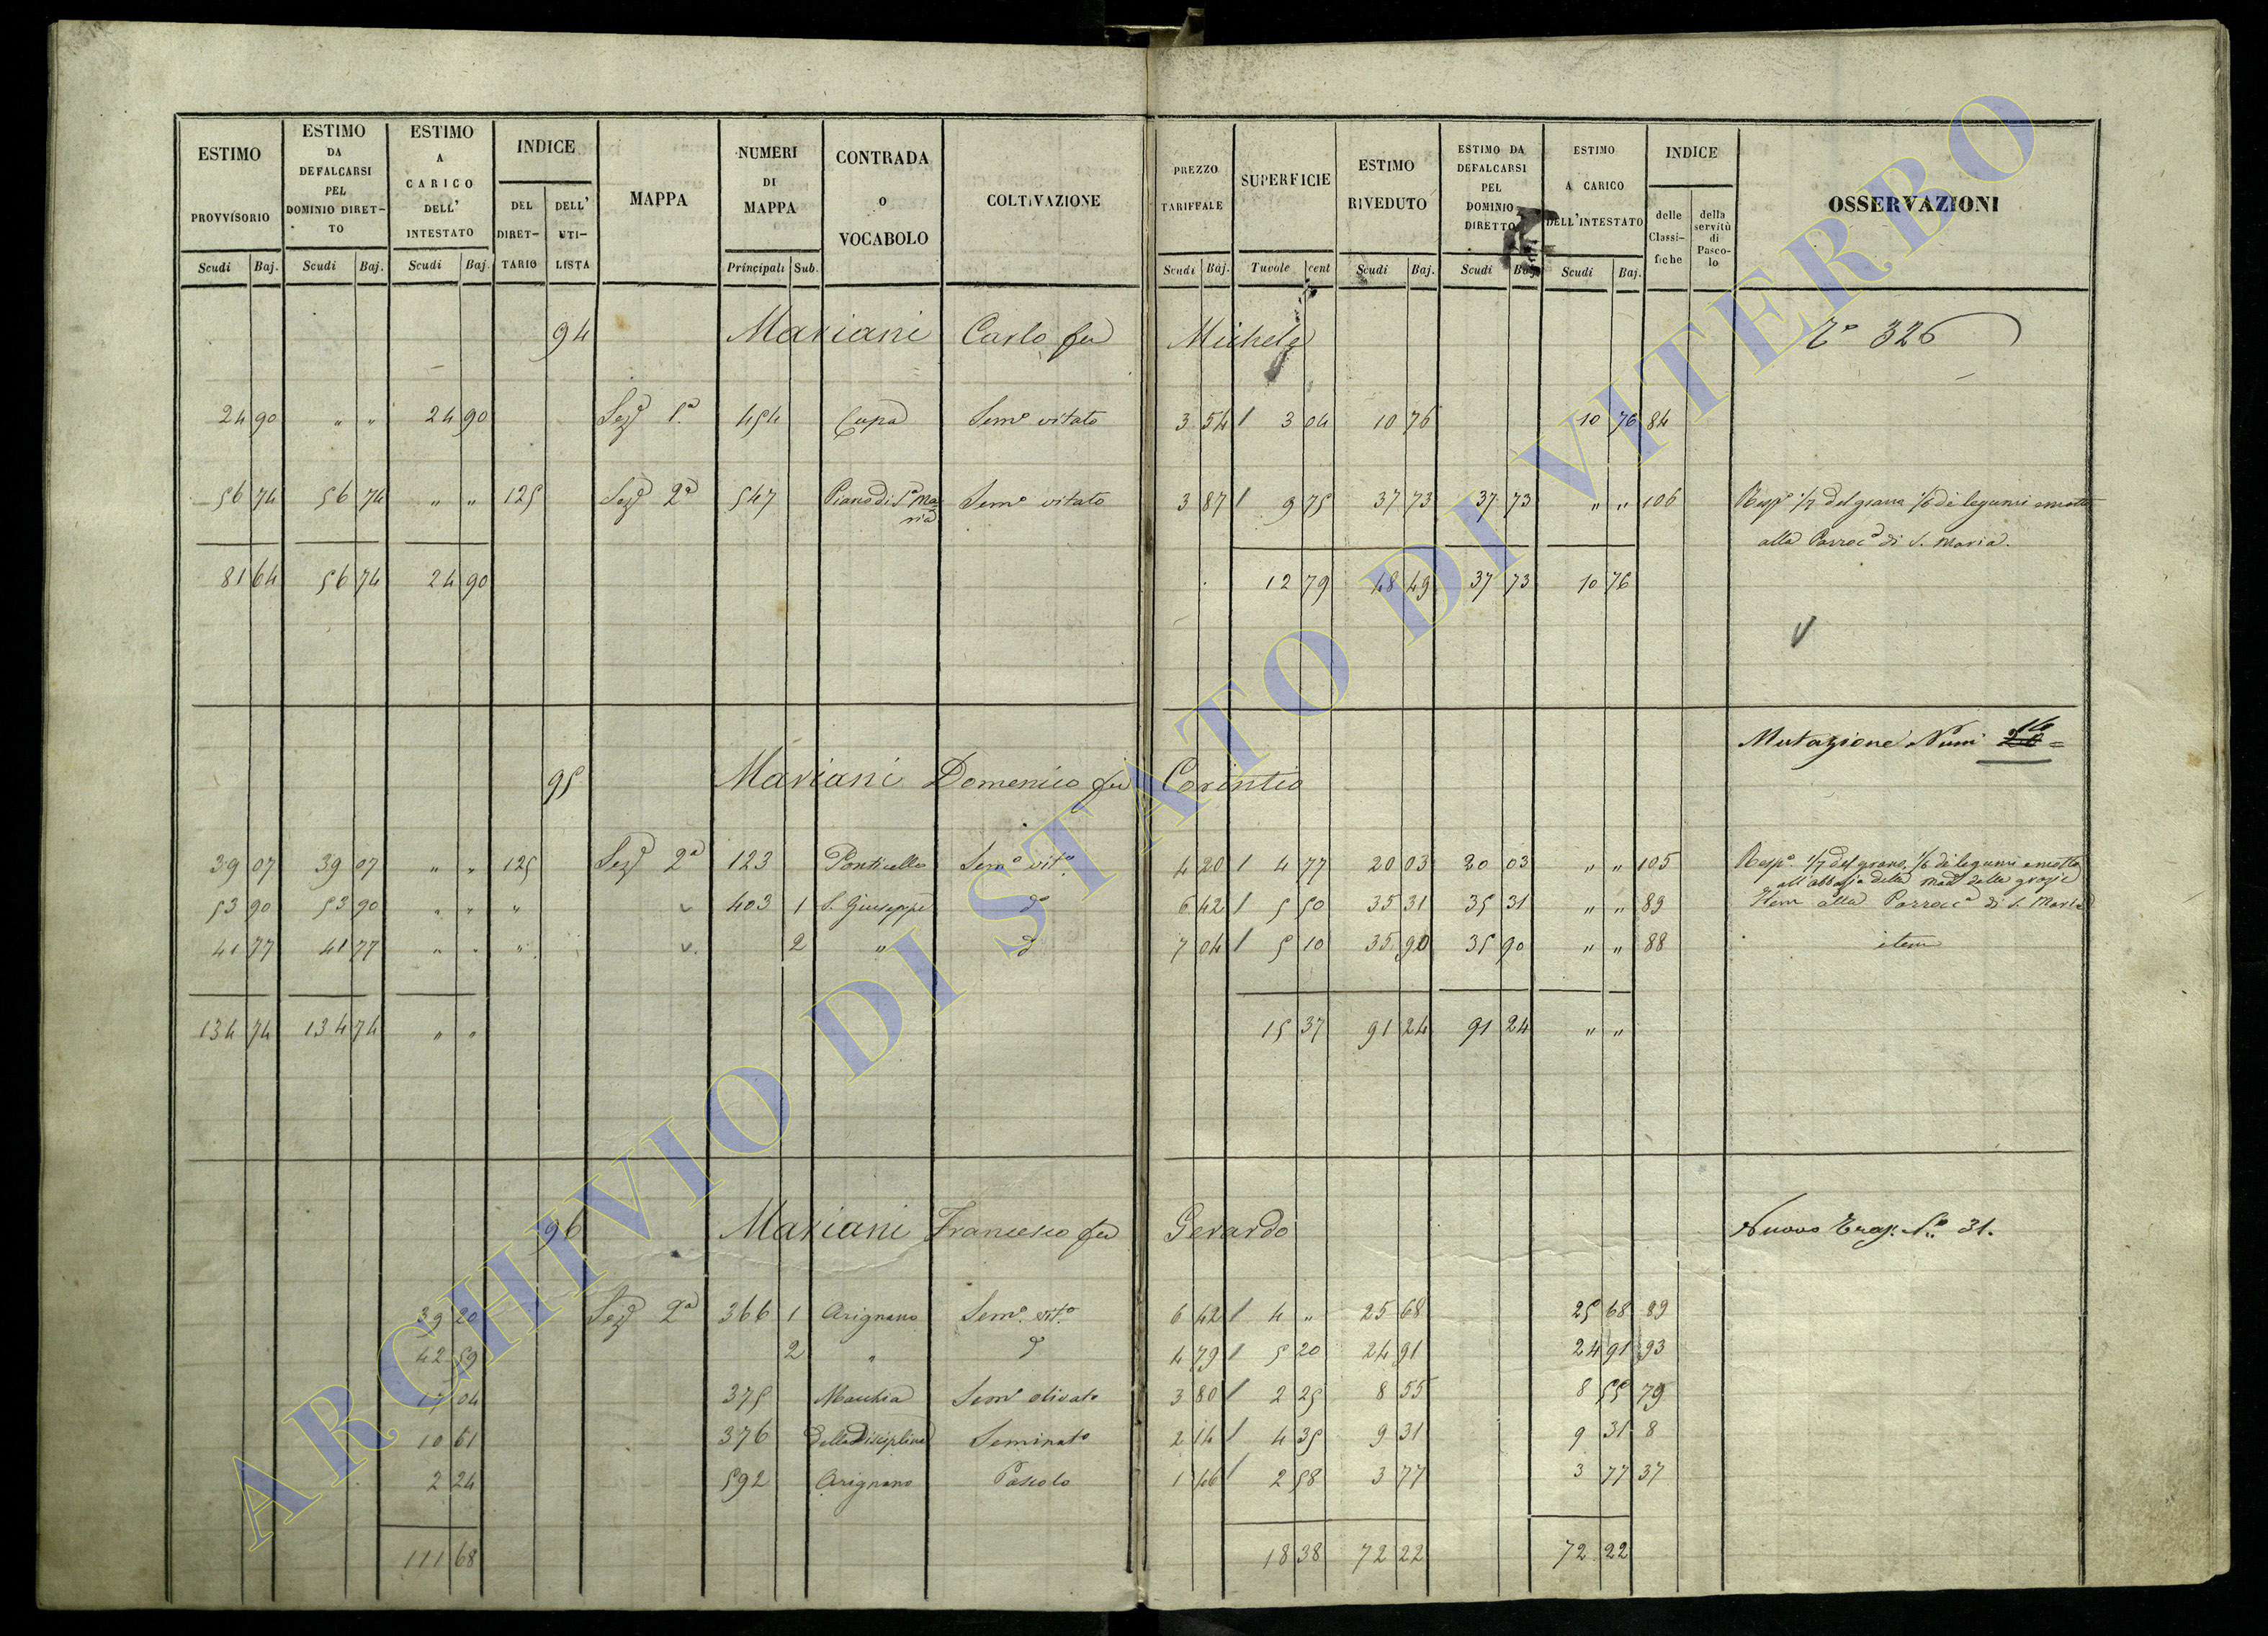 ESTIMO PROVVISORIO Scudi Baj.
ESTIMO DA DEFALCARSI PEL DOMINIO DIRET- TO Scudi Baj.
ESTIMO A CARICO DELL' INTESTATO Scudi Baj.
INDICE DEL DIRET- TARIO DELL' UTI- LISTA
MAPPA
NUMERI DI MAPPA Principali Sub.
CONTRADA O VOCABOLO
COLTIVAZIONE
PREZZO TARIFFALE Scudi Baj.
SUPERFICIE Tavole cent
ESTIMO RIVEDUTO Scudi Baj.
ESTIMO DA DEFALCARSI PEL DOMINIO DIRETTO Scudi Baj.
ESTIMO A CARICO DELL'INTESTATO Scudi Baj.
INDICE delle Classi- fiche della servitù di Pasco- lo
OSSERVAZIONI
94 Mariani Carlo fu Michele 326
24 90 " " 24 90 Sezᵉ 1ª 454 Cupa Semᵒ vitato 3 54 3 04 10 76 10 76 84
56 74 56 74 " " 125 Sezᵉ 2ª 547 Piano di Sª Ma- ria Semᵒ vitato 3 87 9 75 37 73 37 73 " " 106 Respᵒ 1/7 del grano 1/6 di legumi e mosto
alla Parrocª di S. Maria.
81 64 56 74 24 90 12 79 48 49 37 73 10 76
Mutazione Num 16
95 Mariani Domenico fu Corintio
39 07 39 07 " " 125 Sezᵉ 2ª 123 Ponticello Semᵒ vitᵒ 4 20 4 77 20 03 20 03 " " 105 Respᵒ 1/7 del grano, 1/6 di legumi e mosto
all'abbazia della Madª delle grazie
53 90 53 90 " " " 403 1 S. Giuseppe dᵒ 6 42 5 50 35 31 35 31 " " 89 Item alla Parroccª di S. Maria
41 77 41 77 " " " 2 " dᵒ 7 04 5 10 35 90 35 90 " " 88 item
134 74 134 74 " " 15 37 91 24 91 24 " "
96 Mariani Francesco fu Gerardo Nuovo Trasp. Nᵒ 31.
39 20 Sezᵉ 2ª 366 1 Arignano Semᵒ vitᵒ 6 42 4 " 25 68 25 68 89
42 59 2 " dᵒ 4 79 5 20 24 91 24 91 93
17 04 375 Macchia Semᵒ olivato 3 80 2 25 8 55 8 55 79
10 61 376 della Disciplina Seminato 2 14 4 35 9 31 9 31 8
2 24 592 Arignano Pascolo 1 46 2 58 3 77 3 77 37
111 68 18 38 72 22 72 22
ARCHIVIO DI STATO DI VITERBO